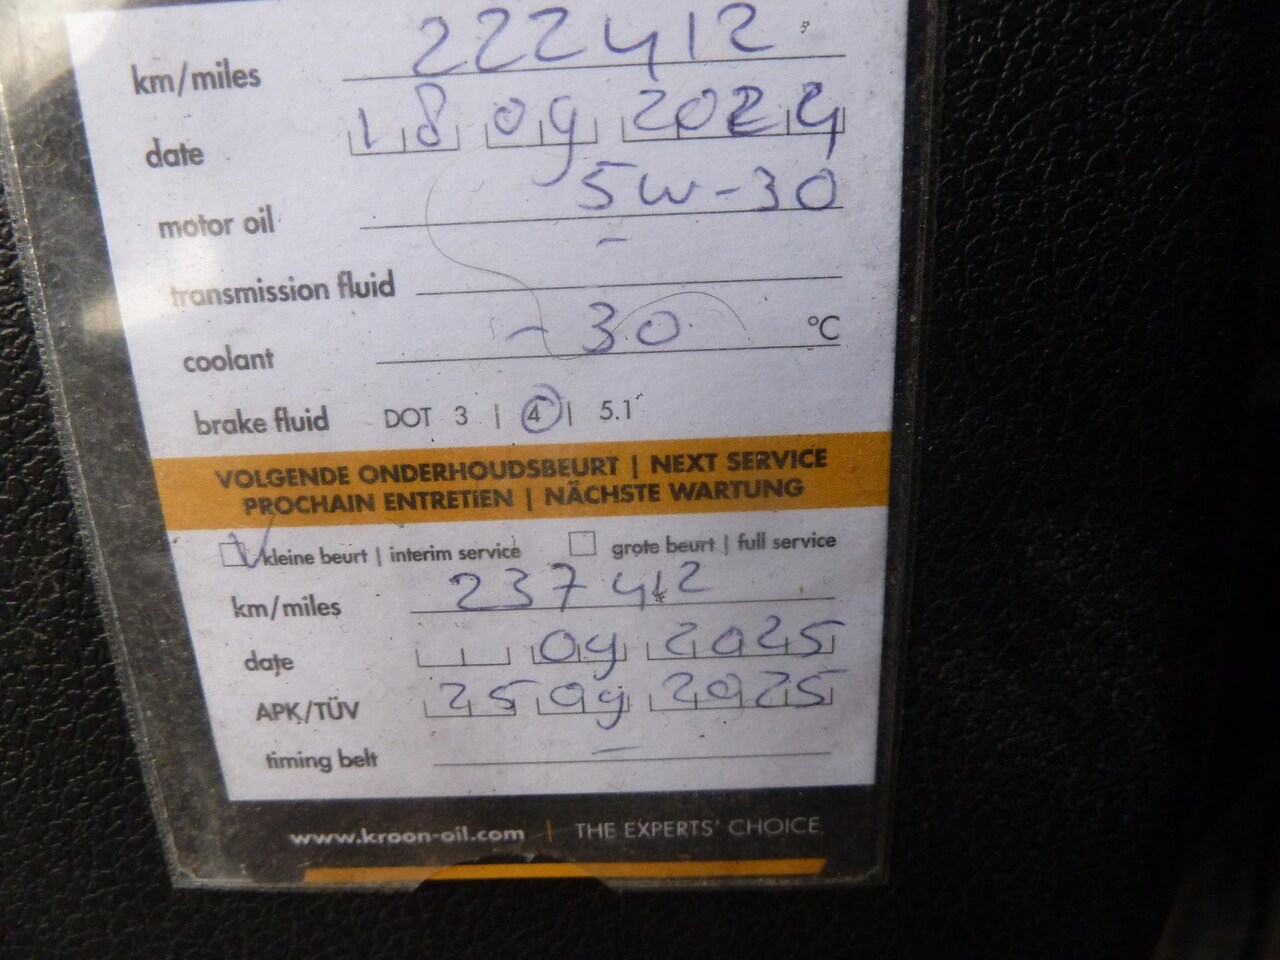 km/miles 222412
date 18 09 2024
motor oil 5W-30
transmission fluid -
coolant -30 °C
brake fluid DOT 3 | 4 | 5.1
VOLGENDE ONDERHOUDSBEURT | NEXT SERVICE
PROCHAIN ENTRETIEN | NÄCHSTE WARTUNG
kleine beurt | interim service grote beurt | full service
km/miles 237412
date 09 2025
APK/TÜV 25 09 2025
timing belt -
www.kroon-oil.com | THE EXPERTS' CHOICE